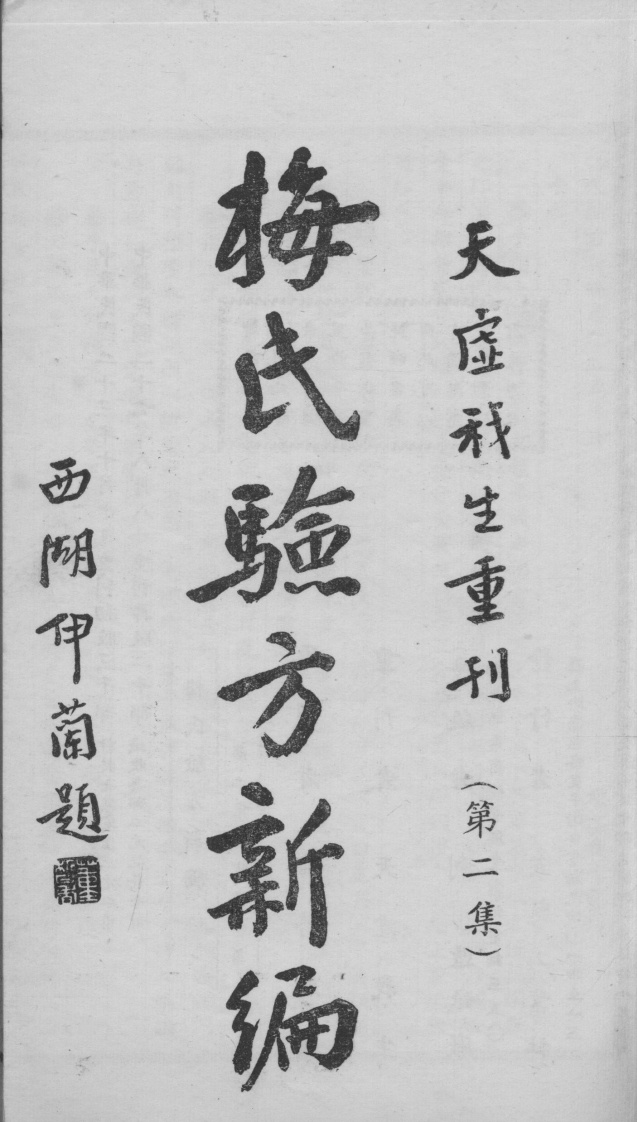 天虛我生重刊（第二集）
梅氏驗方新編
西湖伊蘭題